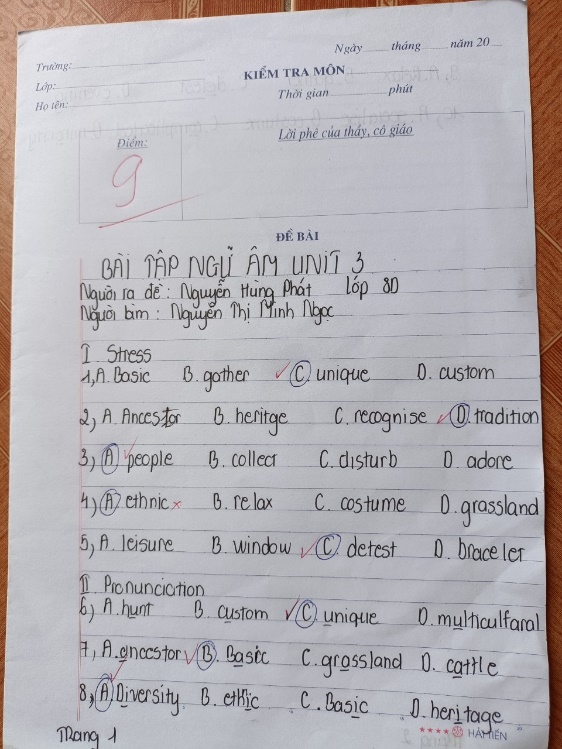 Ngày tháng năm 20
Trường:
KIỂM TRA MÔN
Lớp:
Thời gian phút
Họ tên:
Điểm:
Lời phê của thầy, cô giáo
9
ĐỀ BÀI
BÀI TẬP NGỮ ÂM UNIT 3
Người ra đề : Nguyễn Hùng Phát lớp 8D
Người làm : Nguyễn Thị Minh Ngọc
I Stress
1, A. Basic B. gather C. unique D. custom
2, A. Ancestor B. heritge C. recognise D. tradition
3, A people B. collect C. disturb D. adore
4, A ethnic B. relax C. costume D. grassland
5, A. leisure B. window C. detest D. bracelet
II Pronunciation
6, A. hunt B. custom C. unique D. multicultaral
7, A. ancestor B. Basic C. grassland D. cattle
8, A Diversity B. ethic C. Basic D. heritage
Trang 1
HẢI TIẾN